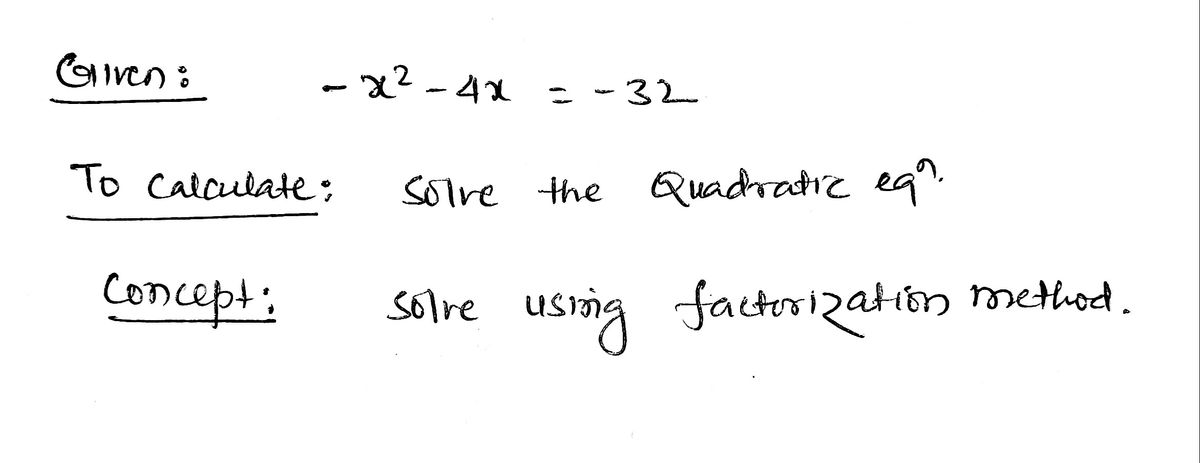 Given: -x² - 4x = -32
To Calculate: Solve the Quadratic eqⁿ.
Concept: Solve using factorization method.